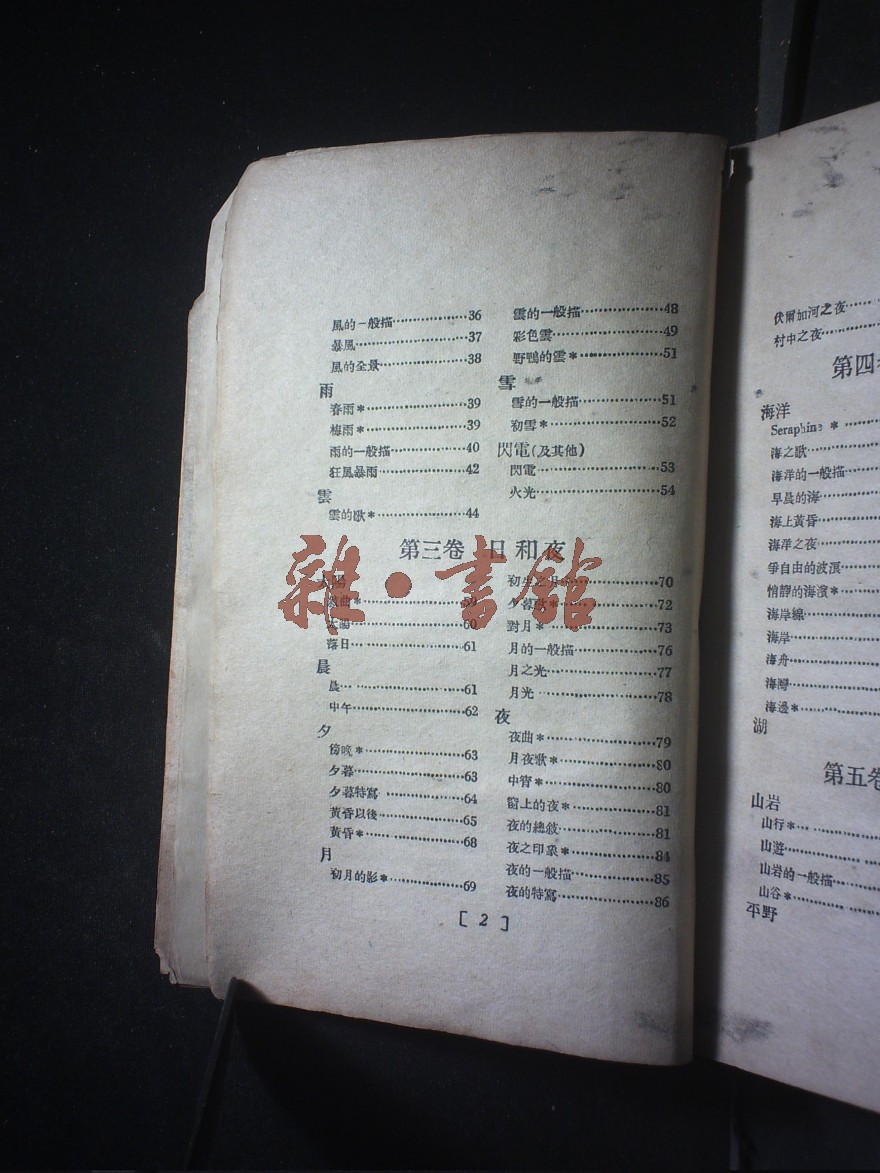 風的一般描…………36
暴風…………37
風的全景…………38
雨
春雨＊…………39
梅雨＊…………39
雨的一般描…………40
狂風暴雨…………42
雲
雲的歌＊…………44
雲的一般描…………48
彩色雲…………49
野鴨的雲＊…………51
雪
雪的一般描…………51
初雪＊…………52
閃電(及其他)
閃電…………53
火光…………54
第三卷 日和夜
曲＊…………59
太陽…………60
落日…………61
晨
晨…………61
中午…………62
夕
傍晚＊…………63
夕暮…………63
夕暮特寫…………64
黃昏以後…………65
黃昏＊…………68
月
初月的影＊…………69
初生之月…………70
夕暮歌＊…………72
對月＊…………73
月的一般描…………76
月之光…………77
月光…………78
夜
夜曲＊…………79
月夜歌＊…………80
中宵＊…………80
窗上的夜＊…………81
夜的總敍…………81
夜之印象＊…………84
夜的一般描…………85
夜的特寫…………86
[2]
雜·書館
伏爾加河之夜……
村中之夜……
第四
海洋
Seraphine ＊……
海之歌……
海洋的一般描……
早晨的海……
海上黃昏……
海洋之夜……
爭自由的波濱……
悄靜的海濱＊……
海岸線……
海岸……
海舟……
海灣……
海邊＊……
湖
第五卷
山岩
山行＊……
山遊……
山岩的一般描……
山谷＊……
平野